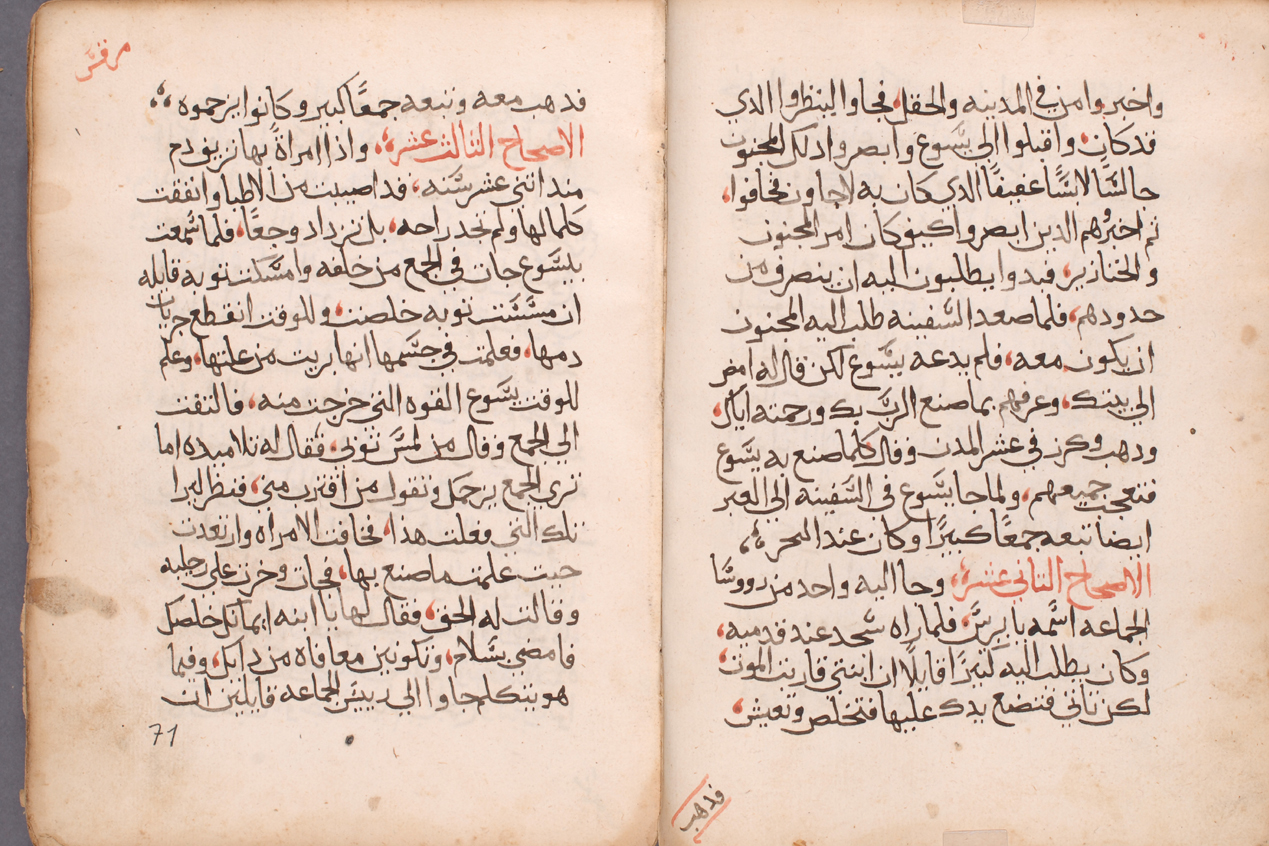 واخبروا من في المدينه والحقل، فجاوا لينظروا الدي
قد كان، واقبلوا الي يسوع وابصروا دلك المجنون
جالسًا لابسًا عفيفًا الدي كان به لاجاون فخافوا،
ثم اخبروهم الدين ابصروا كيف كان امر المجنون
والخنازير، فبدوا يطلبون اليه ان ينصرف من
حدودهم، فلما صعد السفينه طلب اليه المجنون
ان يكون معه، فلم يدعه يسوع لكن قال له امض
الي بيتك، وعرفهم بما صنع الرب بك ورحمته اياك،
ودهب وكرز في عشر المدن وقال كلما صنع به يسوع
فتعجب جميعهم، ولما جا يسوع في السفينه الي العبر
ايضا تبعه جمعًا كبيرًا وكان عند البحر،
الاصحاح الثاني عشر، وجا اليه واحد من رووسا
الجماعه اسمه يايرس، فلما راه سجد عند قدميه،
وكان يطلب اليه كثيرًا قايلًا ان ابنتي قاربت الموت،
لكن تاتي فتضع يدك عليها فتخلص وتعيش،
فدهب
مرقس
فدهب معه وتبعه جمعًا كبير وكانوا يزحموه
الاصحاح الثالث عشر، واذا امراةً بها نزيف دم
مند اثني عشر سنه، قد اصيبت من الاطبا وانفقت
كلما لها ولم تجد راحه، بل تزداد وجعًا، فلما سمعت
بيسوع جات في الجمع من خلفه وامسكت توبه قايله
ان مسست توبه خلصت، وللوقت انقطع جريان
دمها، فعلمت في جسمها انها بريت من علتها، وعلم
للوقت يسوع القوه التي خرجت منه، فالتفت
الي الجمع وقال من لمس توبي، فقال له تلاميده اما
تري الجمع يزحمك وتقول من اقترب مني، فنظر ليرا
تلك التي فعلت هذا، فخافت الامراه وارتعدت
حيت علمت ما صنع بها، فجات وخرت علي رجليه
وقالت له الحق، فقال لها يا ابنه ايمانك خلصك
فامضي بسلام، وتكونين معافاه من دايك، وفيما
هو يتكلم جاوا الي رييس الجماعه قايلين ان
71